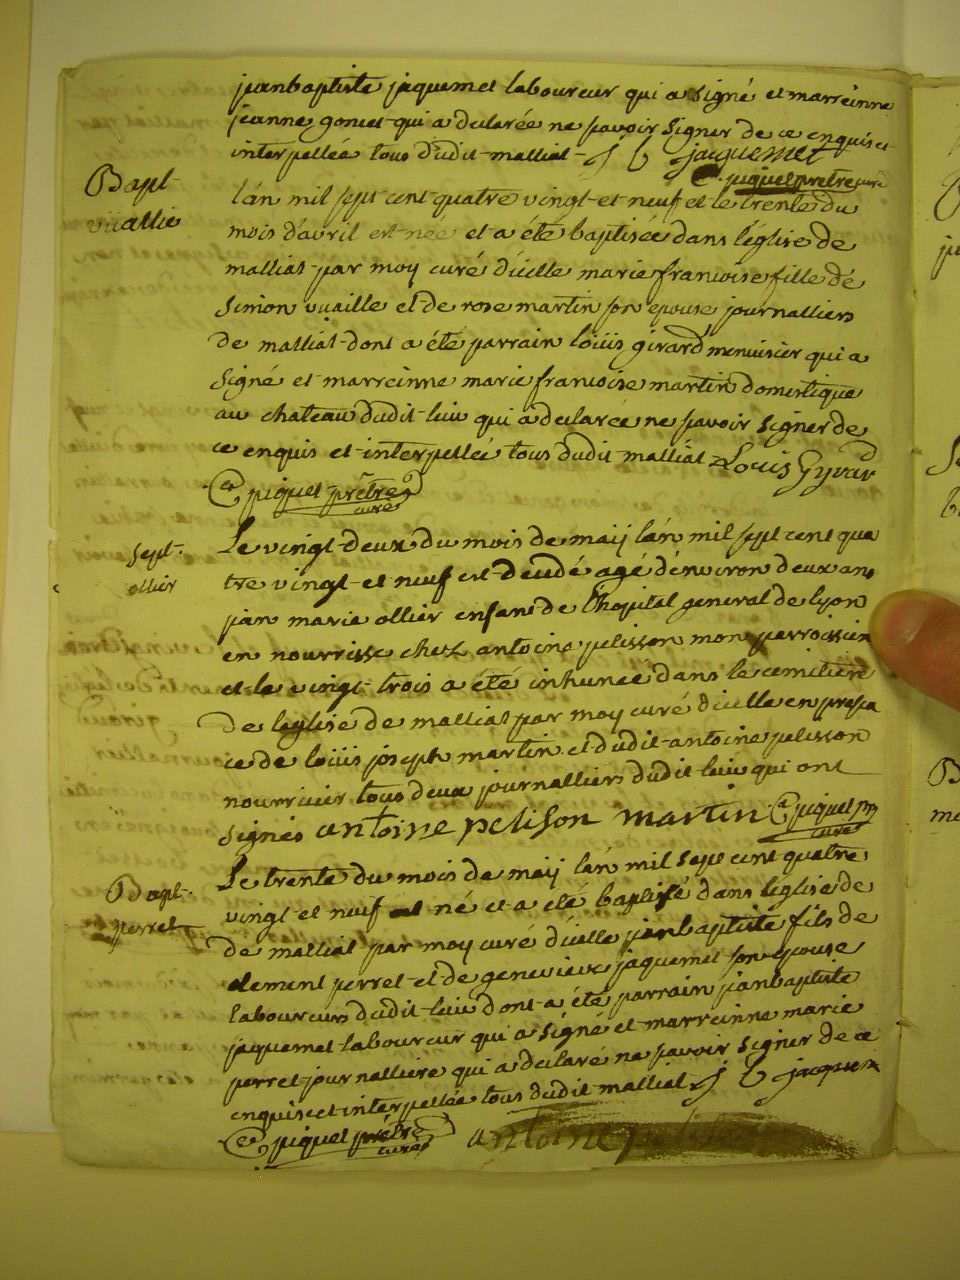 janbaptiste jaquemet laboureur qui a signé et marreinne
jeanne goniet qui a declarée ne savoir signer de ce enquise et
interpellée tous dudit malliat j b jacquemet
piquet prêtre curé
Bapt
vuallie
l'an mil sept cent quatre vingt et neuf et le trente du
mois d'avril est née et a été baptisée dans l'église de
malliat par moy curé d'icelle marie francoise fille de
Simon vuaille et de rose martin son epouse journalliers
de malliat dont a été parrain loüis girard menuisier qui a
signé et marreinne marie francoise martin domestique
au chateau dudit lieu qui a declarée ne savoir signer de
ce enquis et interpellée tous dudit malliat Louis Gyrard
piquet prêtre
curé
Sept.
ollier
Le vingt deux du mois de maij l'an mil sept cent qua
tre vingt et neuf est decedé agé d'environ deux ans
jan marie ollier enfant de l'hopital general de lyon
en nourrisse chez antoine pelisson mon parroissien
et le vingt trois a été inhumé dans le cemitiere
de leglise de malliat par moy curé d'icelle en presen
ce de loüis joseph martin et dudit antoine pelisson
nourricier tous deux journalliers dudit lieu qui ont
signés antoine pelison martin piquet ptr
curé
Bapt.
perret
Le trente du mois de maij l'an mil sept cent quatre
vingt et neuf est né et a été baptisé dans l'église de
de malliat par moy curé d'icelle janbaptiste fils de
clement perret et de genevieve jaquemet son epouse
laboureurs dudit lieu dont a été parrain janbaptiste
jaquemet laboureur qui a signé et marreinne marie
perret journalliere qui a declaré ne savoir signer de ce
enquise et interpellée tous dudit malliat j b jacquem
piquet prêtre
curé
antoine